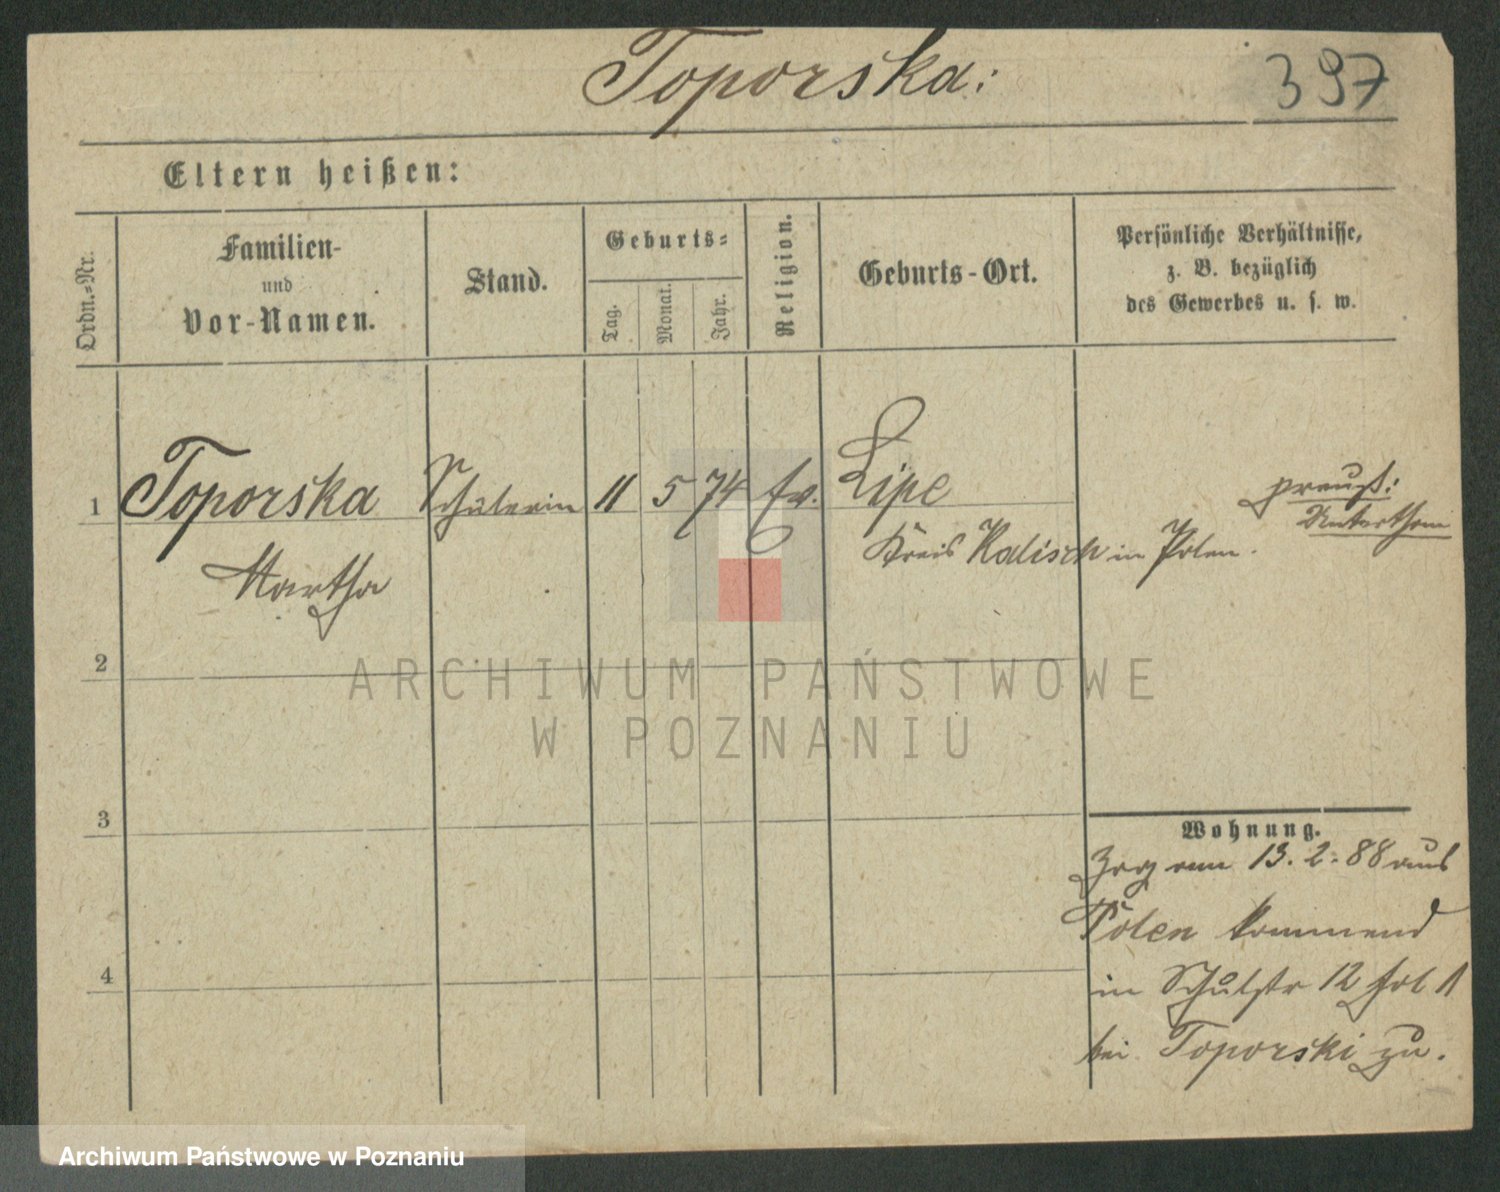 Toporska:
397
Eltern heißen:
Ordn.-Nr.
Familien-
und
Vor-Namen.
Stand.
Geburts-
Tag.
Monat.
Jahr.
Religion.
Geburts-Ort.
Persönliche Verhältnisse,
z. B. bezüglich
des Gewerbes u. s. w.
1 Toporska Schülerin 11 5 74 Ev. Lipe
preuß:
Unterthan
Kreis Kalisch in Polen.
Martha
2
3
4
Wohnung.
Zog am 13. 2. 88 aus
Polen kommend
in Schulstr 12
bei Toporski zu.
ARCHIWUM PAŃSTWOWE
W POZNANIU
Archiwum Państwowe w Poznaniu